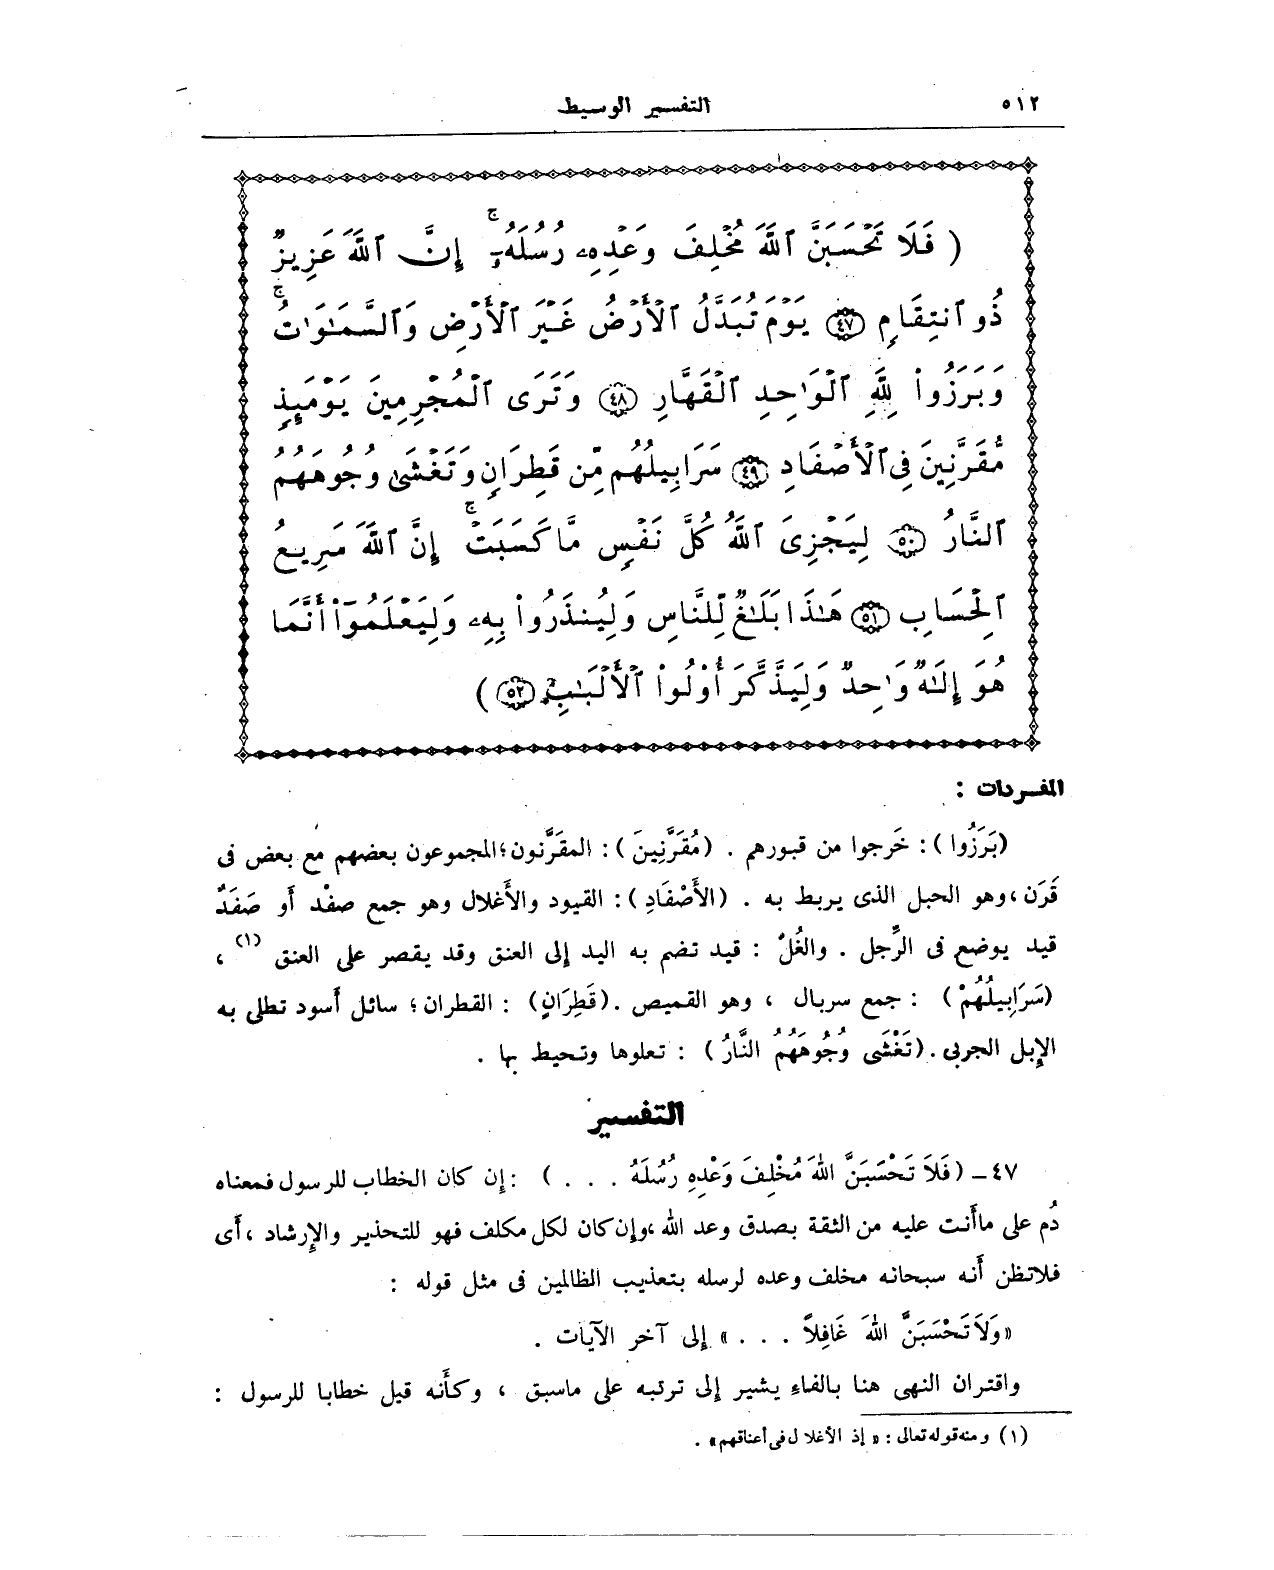 ٥١٢
التفسير الوسيط
( فَلَا تَحْسَبَنَّ ٱللَّهَ مُخْلِفَ وَعْدِهِۦ رُسُلَهُۥٓ ۚ إِنَّ ٱللَّهَ عَزِيزٌ
ذُو ٱنتِقَامٍ ﴿٤٧﴾ يَوْمَ تُبَدَّلُ ٱلْأَرْضُ غَيْرَ ٱلْأَرْضِ وَٱلسَّمَـٰوَٰتُ ۖ
وَبَرَزُوا۟ لِلَّهِ ٱلْوَٰحِدِ ٱلْقَهَّارِ ﴿٤٨﴾ وَتَرَى ٱلْمُجْرِمِينَ يَوْمَئِذٍ
مُّقَرَّنِينَ فِى ٱلْأَصْفَادِ ﴿٤٩﴾ سَرَابِيلُهُم مِّن قَطِرَانٍ وَتَغْشَىٰ وُجُوهَهُمُ
ٱلنَّارُ ﴿٥٠﴾ لِيَجْزِىَ ٱللَّهُ كُلَّ نَفْسٍ مَّا كَسَبَتْ ۚ إِنَّ ٱللَّهَ سَرِيعُ
ٱلْحِسَابِ ﴿٥١﴾ هَـٰذَا بَلَـٰغٌ لِّلنَّاسِ وَلِيُنذَرُوا۟ بِهِۦ وَلِيَعْلَمُوٓا۟ أَنَّمَا
هُوَ إِلَـٰهٌ وَٰحِدٌ وَلِيَذَّكَّرَ أُو۟لُوا۟ ٱلْأَلْبَـٰبِ ﴿٥٢﴾ )
المفردات :
(بَرَزُوا ) : خَرجوا من قبورهم . (مُقَرَّنِينَ ) : المقَرَّنون؛المجموعون بعضهم مع بعض فى
قَرَن ،وهو الحبل الذى يربط به . (الأَصْفَادِ ) : القيود والأَغلال وهو جمع صفْد أَو صَفَدٌ
قيد يوضع فى الرِّجل . والغُلّ : قيد تضم به اليد إلى العنق وقد يقصر على العنق (١) ،
(سَرَابِيلُهُمْ ) : جمع سربال ، وهو القميص .(قَطِرَانٍ) : القطران ؛ سائل أسود تطلى به
الإِبل الجربى .(تَغْشَى وُجُوهَهُمُ النَّارُ ) : تعلوها وتحيط بها .
التفسير
٤٧ــ ( فَلَا تَحْسَبَنَّ اللهَ مُخْلِفَ وَعْدِهِ رُسُلَهُ . . . ) : إن كان الخطاب للرسول فمعناه
دُم على ماأَنت عليه من الثقة بصدق وعد الله ،وإن كان لكل مكلف فهو للتحذير والإِرشاد ، أَى
فلاتظن أَنه سبحانه مخلف وعده لرسله بتعذيب الظالمين فى مثل قوله :
«وَلَا تَحْسَبَنَّ اللهَ غَافِلاً . . . » إلى آخر الآيات .
واقتران النهى هنا بالفاءِ يشير إلى ترتبه على ماسبق ، وكأَنه قيل خطابا للرسول :
(١) ومنه قوله تعالى : « إذ الأغلال فى أعناقهم» .